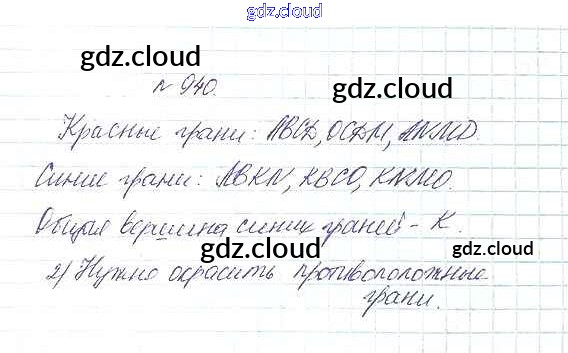 gdz.cloud
gdz.cloud gdz.cloud
№ 940.
Красные грани: ABCD, OCDM, ANMD.
Синие грани: ABKN, KBCO, KNMO.
Общая вершина синих граней - K.
gdz.cloud gdz.cloud
2) Нужно окрасить противоположные
грани.
gdz.cloud